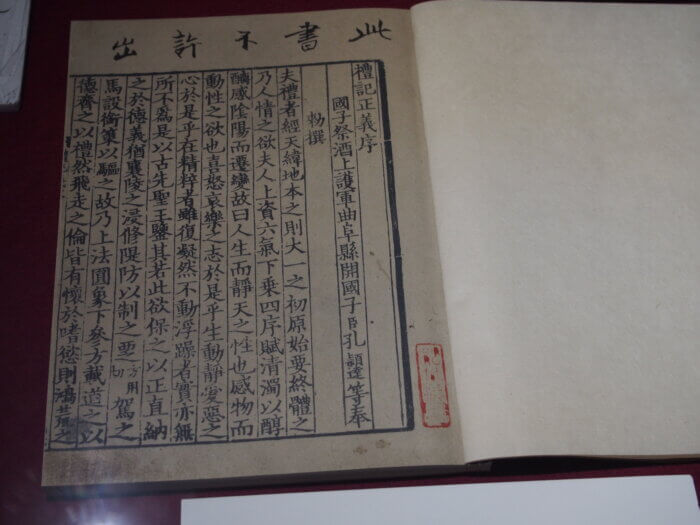 此書不許出
禮記正義序
國子祭酒上護軍曲阜縣開國子臣孔穎達等奉
勑撰
夫禮者經天緯地本之則大一之初原始要終體之
乃人情之欲夫人上資六氣下乗四序賦清濁以醇
醨感隂陽而遷變故曰人生而靜天之性也感物而
動性之欲也喜怒哀樂之志於是乎生動靜愛惡之
心於是乎在精粹者雖復凝然不動浮躁者實亦無
所不爲是以古先聖王鑒其若此欲保之以正直納
之於德義猶襄陵之浸修隄防以制之覂方用切駕之
馬設銜策以驅之故乃上法圓象下參方載道之以
德齊之以禮然飛走之倫皆有懷於嗜慾則鴻荒之